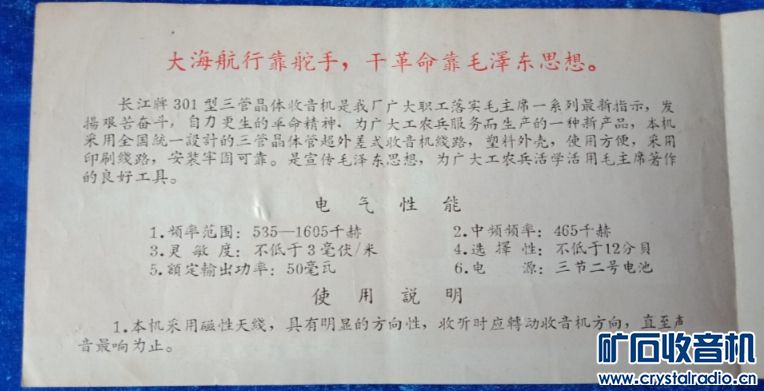 大海航行靠舵手，干革命靠毛澤东思想。
长江牌301型三管晶体收音机是我厂广大职工落实毛主席一系列最新指示，发
揚艰苦奋斗，自力更生的革命精神．为广大工农兵服务而生产的一种新产品，本机
采用全国統一設計的三管晶体管超外差式收音机线路，塑料外壳，使用方便，采用
印刷线路，安装牢固可靠。是宣传毛泽东思想，为广大工农兵活学活用毛主席著作
的良好工具。
电气性能
1.频率范围：535—1605千赫 2.中频频率：465千赫
3.灵敏度：不低于3毫伏/米 4.选擇性：不低于12分貝
5.額定輸出功率：50毫瓦 6.电源：三节二号电池
使用説明
1.本机采用磁性天綫，具有明显的方向性，收听时应轉动收音机方向，直至声
音最响为止。
矿石收音机
www.crystalradio.cn